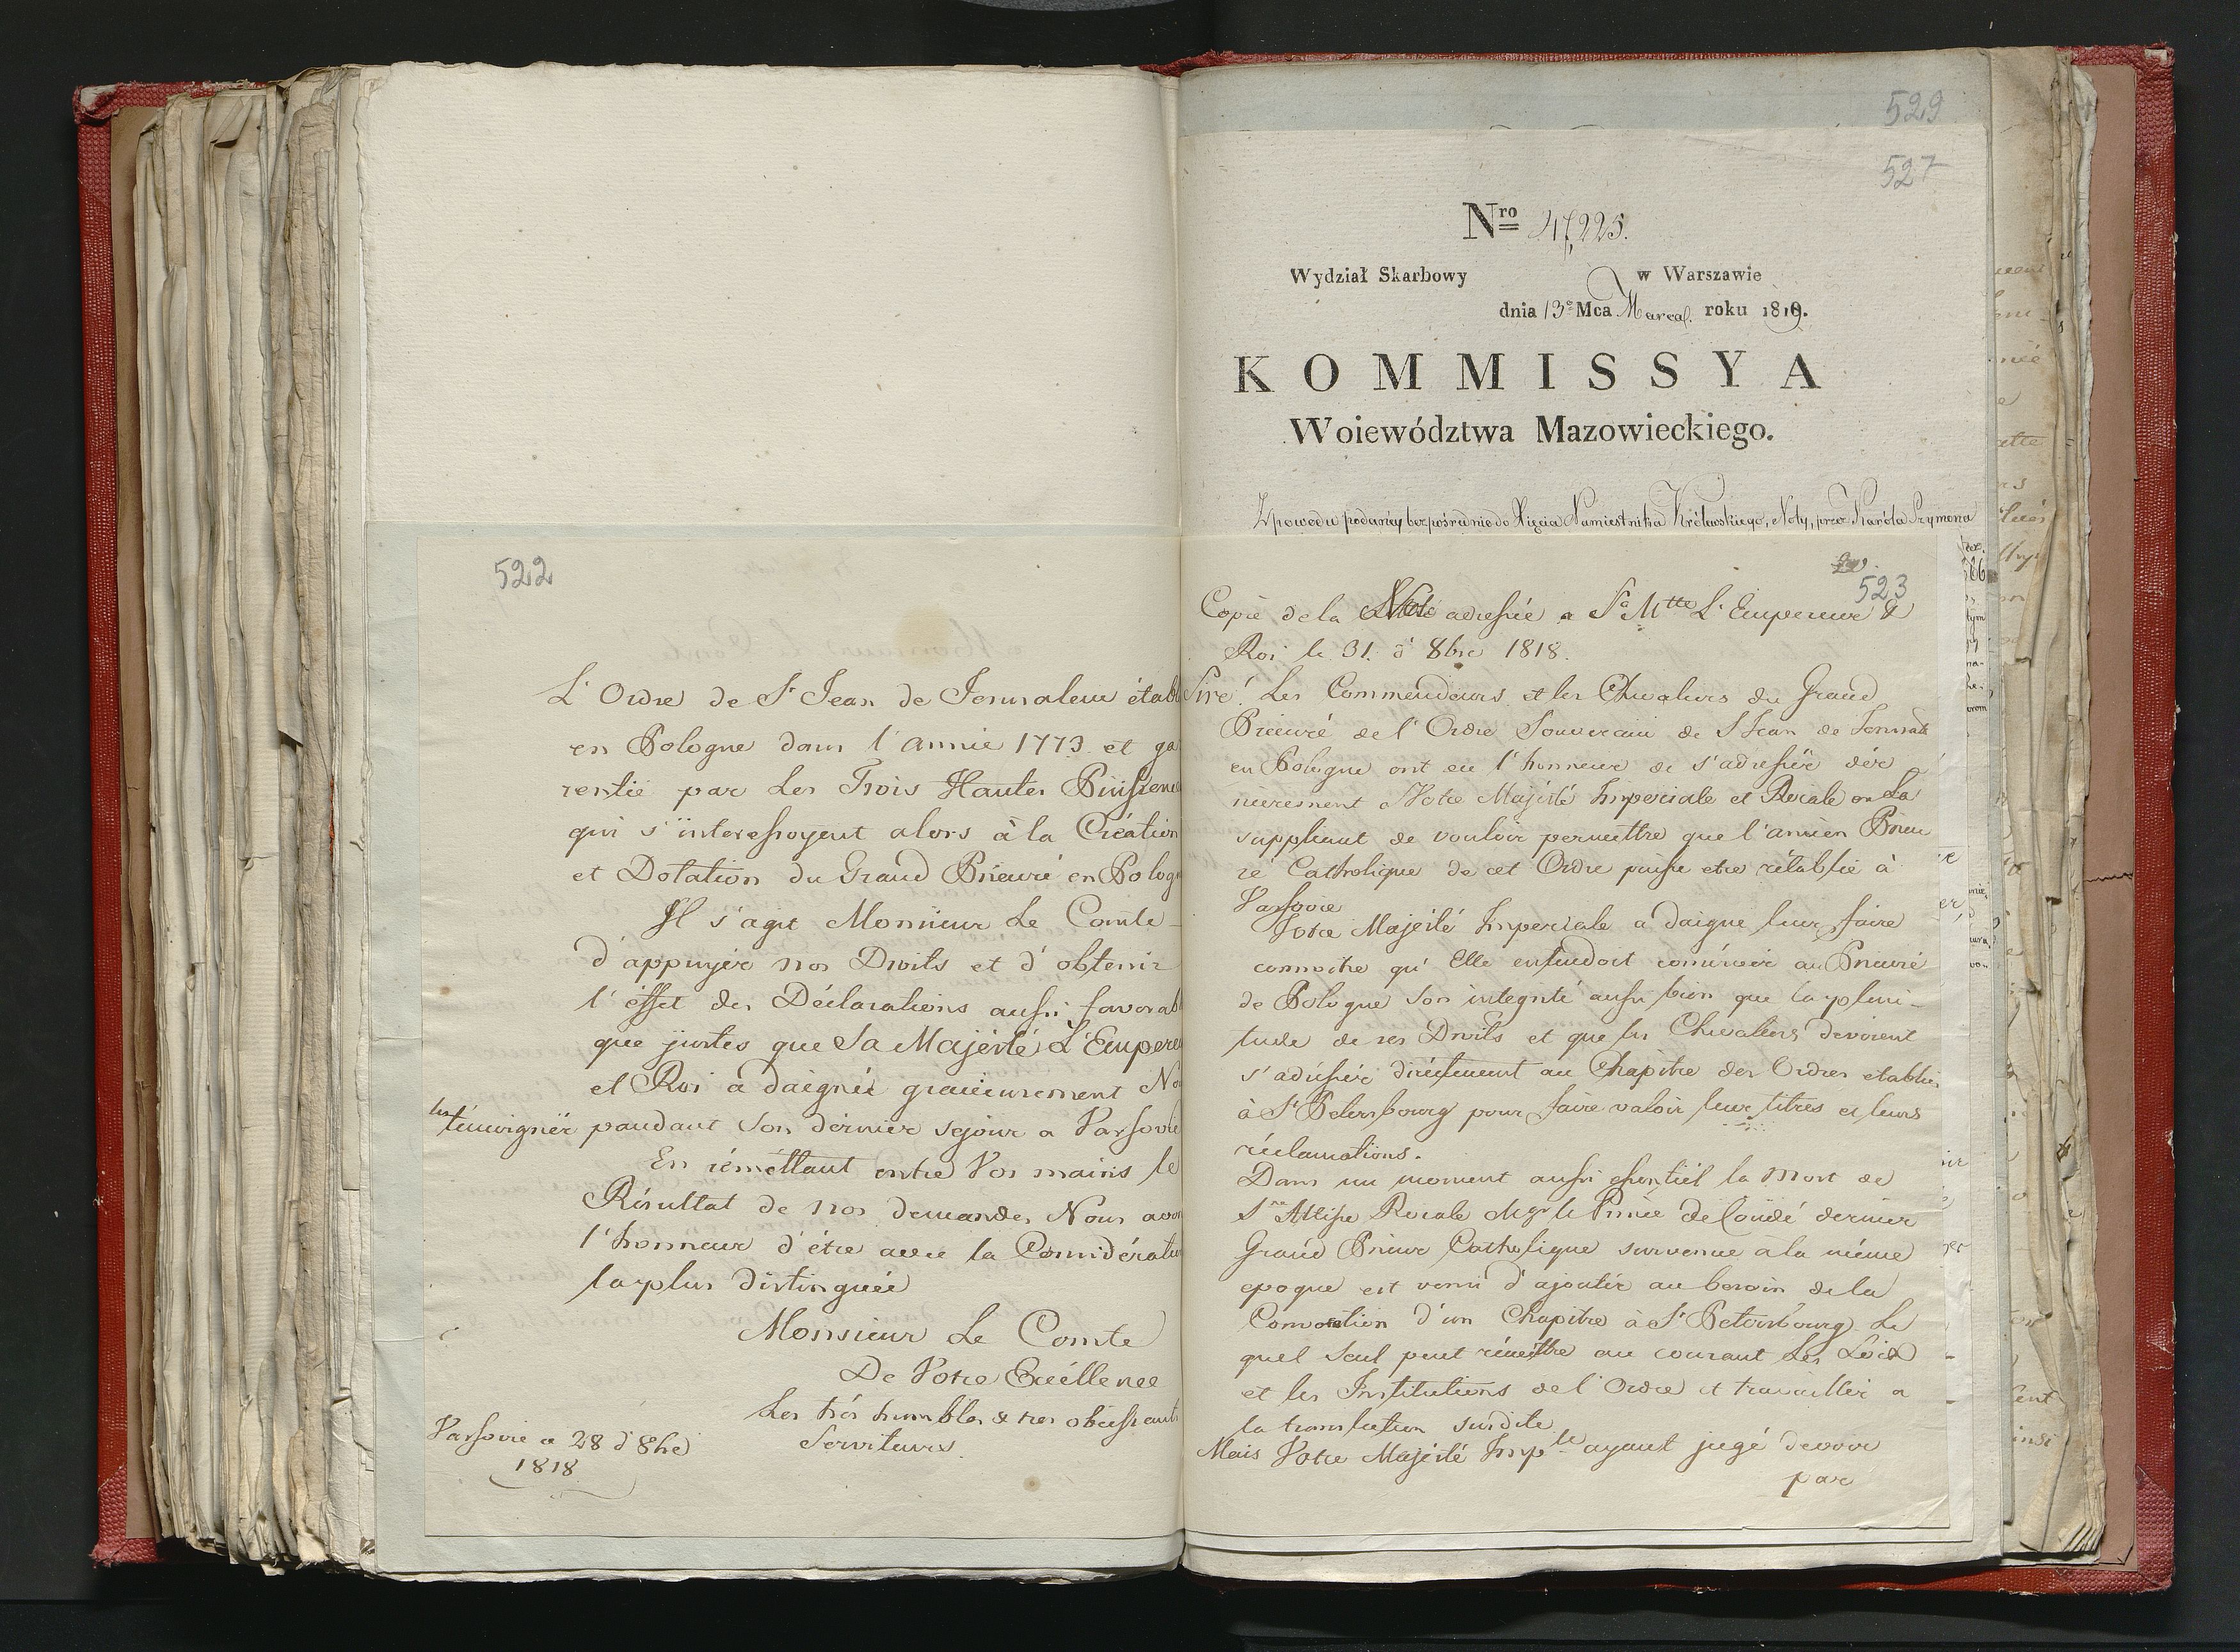 522
L'Ordre de St Jean de Jerusalem établ
en Pologne dans l'année 1773. et ga
rentie par Les Trois Hautes Püissence
qui s'interessoyent alors à la Création
et Dotation du Grand Prieuré en Polog
Il s'agit Monsieur Le Comte
d'appuyér nos Droits et d'obtenir
l'éffet des Déclarations aussi favorab
que justes que Sa Majésté L'Empere
et Roi a daignée gracieusement No
les
témoignér pandant Son dérnier sejour a Varsovie
En rémettant entre Vos mains le
Résultat de nos demandes Nous avon
l'honneur d'étre avec la Considératio
la plus distinguée
Monsieur Le Comte
De Votre Excéllence
Les trés humbles & tres obeissants
Serviteurs
Varsovie a 28 d'8bre
1818
529
527
Nro 47,225.
Wydział Skarbowy w Warszawie
dnia 13o Mca Marca roku 1819.
KOMMISSYA
Woiewództwa Mazowieckiego.
Z powodu podaney bezpośrednio do Xięcia Namiestnika Królewskiego, Noty, przez Karola Szymona
523
Copie de la Note adressée a Sa Mtte L'Empereur &
Roi le 31. d'8bre 1818.
Sire! Les Commendeurs et les Chevaliers du Grand
Prieuré de l'Ordre Souverain de St Jean de Jerusal
en Pologne ont eu l'honneur de s'adressér dér
nierement Votre Majésté Imperiale et Roiale en La
suppliant de vouloir permettre que l'ancien Prieu
ré Catholique de cet Ordre puisse etre rétablie à
Varsovie
Votre Majésté Imperiale a daigné leur faire
connoitre qu'Elle entendoit consérvér au Prieuré
de Pologne son integrité aussi bien que la pleni-
tude de ses Droits et que les Chevaliers devoient
s'adréssér diréctement au Chapitre des Ordres etablies
à St Petersbourg pour faire valoir leur titres et leurs
réclamations.
Dans un moment aussi éssentiél la Mort de
Son Altésse Roiale Mgr le Prince De Condé dernier
Grand Prieur Catholique survenue à la même
epoque est venu d'ajoutér au besoin de la
Convocation d'un Chapitre à St Petersbourg Le
quel Seul peut rémettre au courant Les Loix
et les Institutions de l'Ordre et travaillér a
la translation susdite
Mais Votre Majésté Imple ayant jugé devoir
par